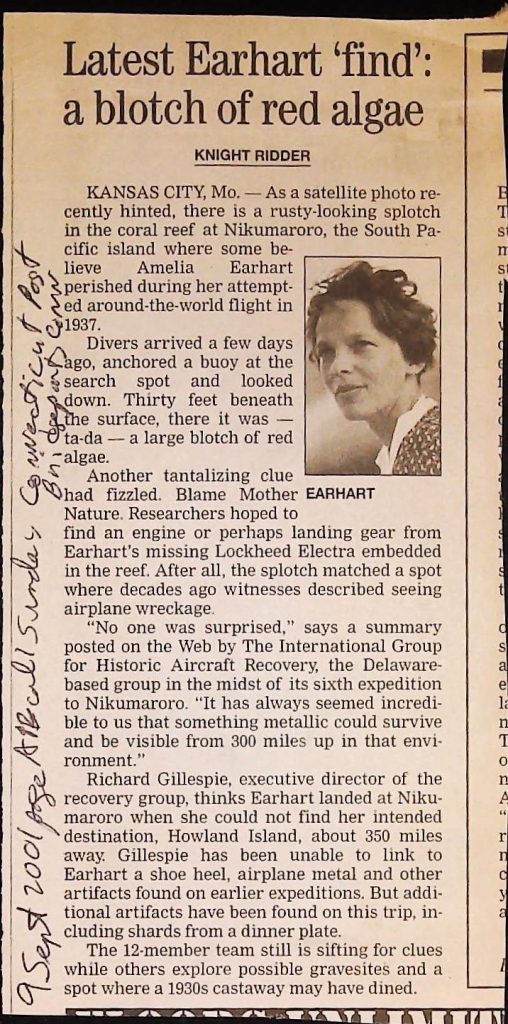 Latest Earhart ‘find’:
a blotch of red algae
KNIGHT RIDDER
KANSAS CITY, Mo. — As a satellite photo re-
cently hinted, there is a rusty-looking splotch
in the coral reef at Nikumaroro, the South Pa-
cific island where some be-
lieve Amelia Earhart
perished during her attempt-
ed around-the-world flight in
1937.
Divers arrived a few days
ago, anchored a buoy at the
search spot and looked
down. Thirty feet beneath
the surface, there it was —
ta-da — a large blotch of red
algae.
Another tantalizing clue
had fizzled. Blame Mother
Nature. Researchers hoped to
EARHART
find an engine or perhaps landing gear from
Earhart’s missing Lockheed Electra embedded
in the reef. After all, the splotch matched a spot
where decades ago witnesses described seeing
airplane wreckage.
“No one was surprised,” says a summary
posted on the Web by The International Group
for Historic Aircraft Recovery, the Delaware-
based group in the midst of its sixth expedition
to Nikumaroro. “It has always seemed incredi-
ble to us that something metallic could survive
and be visible from 300 miles up in that envi-
ronment.”
Richard Gillespie, executive director of the
recovery group, thinks Earhart landed at Niku-
maroro when she could not find her intended
destination, Howland Island, about 350 miles
away. Gillespie has been unable to link to
Earhart a shoe heel, airplane metal and other
artifacts found on earlier expeditions. But addi-
tional artifacts have been found on this trip, in-
cluding shards from a dinner plate.
The 12-member team still is sifting for clues
while others explore possible gravesites and a
spot where a 1930s castaway may have dined.
9 Sept 2001 page Sunday Connecticut Post
Bridgeport Conn